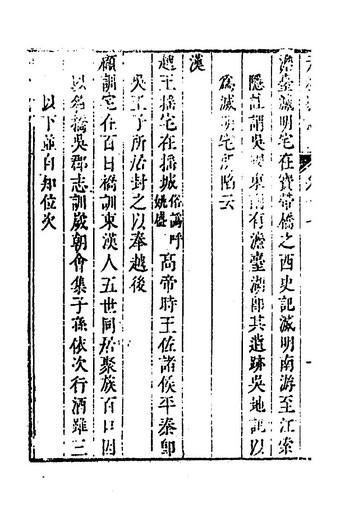 澹臺滅明宅在寶帶橋之西史記滅明南游至江索
隱註謂吳國東南有澹臺湖即其遺跡吳地記以
爲滅明宅所陷云
漢
越王搖宅在搖城俗譌呼姚盛高帝時王佐諸侯平秦即
吳王子所居封之以奉越後
顧訓宅在百口橋訓東漢人五世同居聚族百口因
以名橋吳郡志訓歲朝會集子孫依次行酒雖三
以下並自知位次